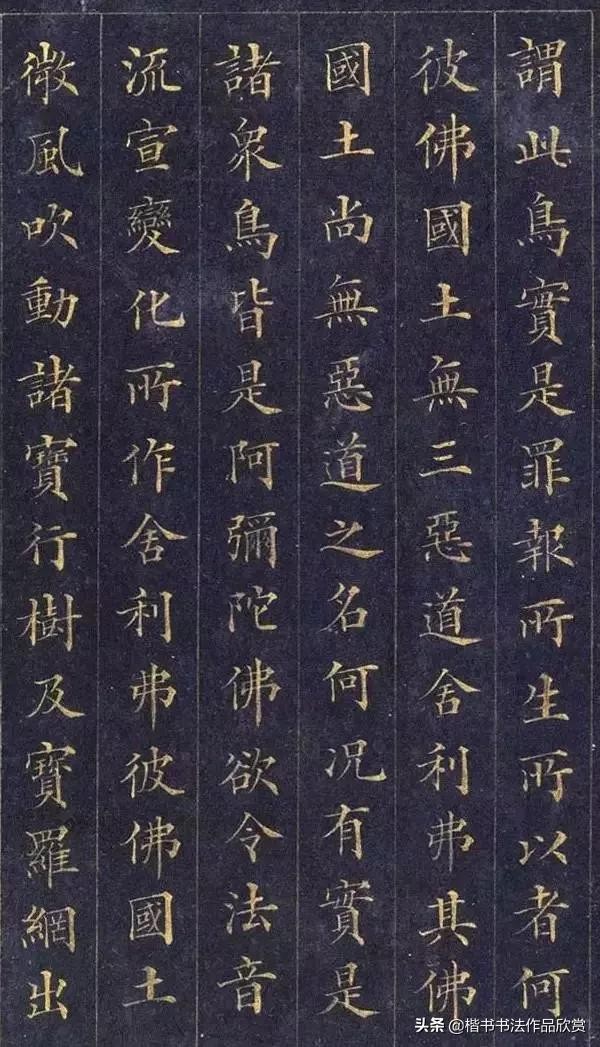 謂此鳥實是罪報所生所以者何
彼佛國土無三惡道舍利弗其佛
國土尚無惡道之名何況有實是
諸衆鳥皆是阿彌陀佛欲令法音
流宣變化所作舍利弗彼佛國土
微風吹動諸寶行樹及寶羅網出
头条 @楷书书法作品欣赏